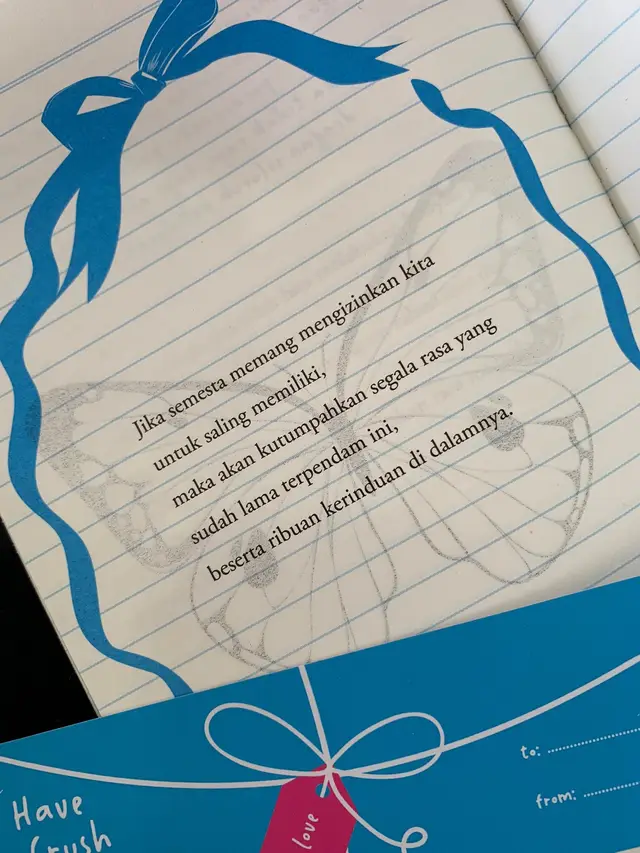 Jika semesta memang mengizinkan kita
untuk saling memiliki,
maka akan kutumpahkan segala rasa yang
sudah lama terpendam ini,
beserta ribuan kerinduan di dalamnya.
to:
from:
Have
Crush
love